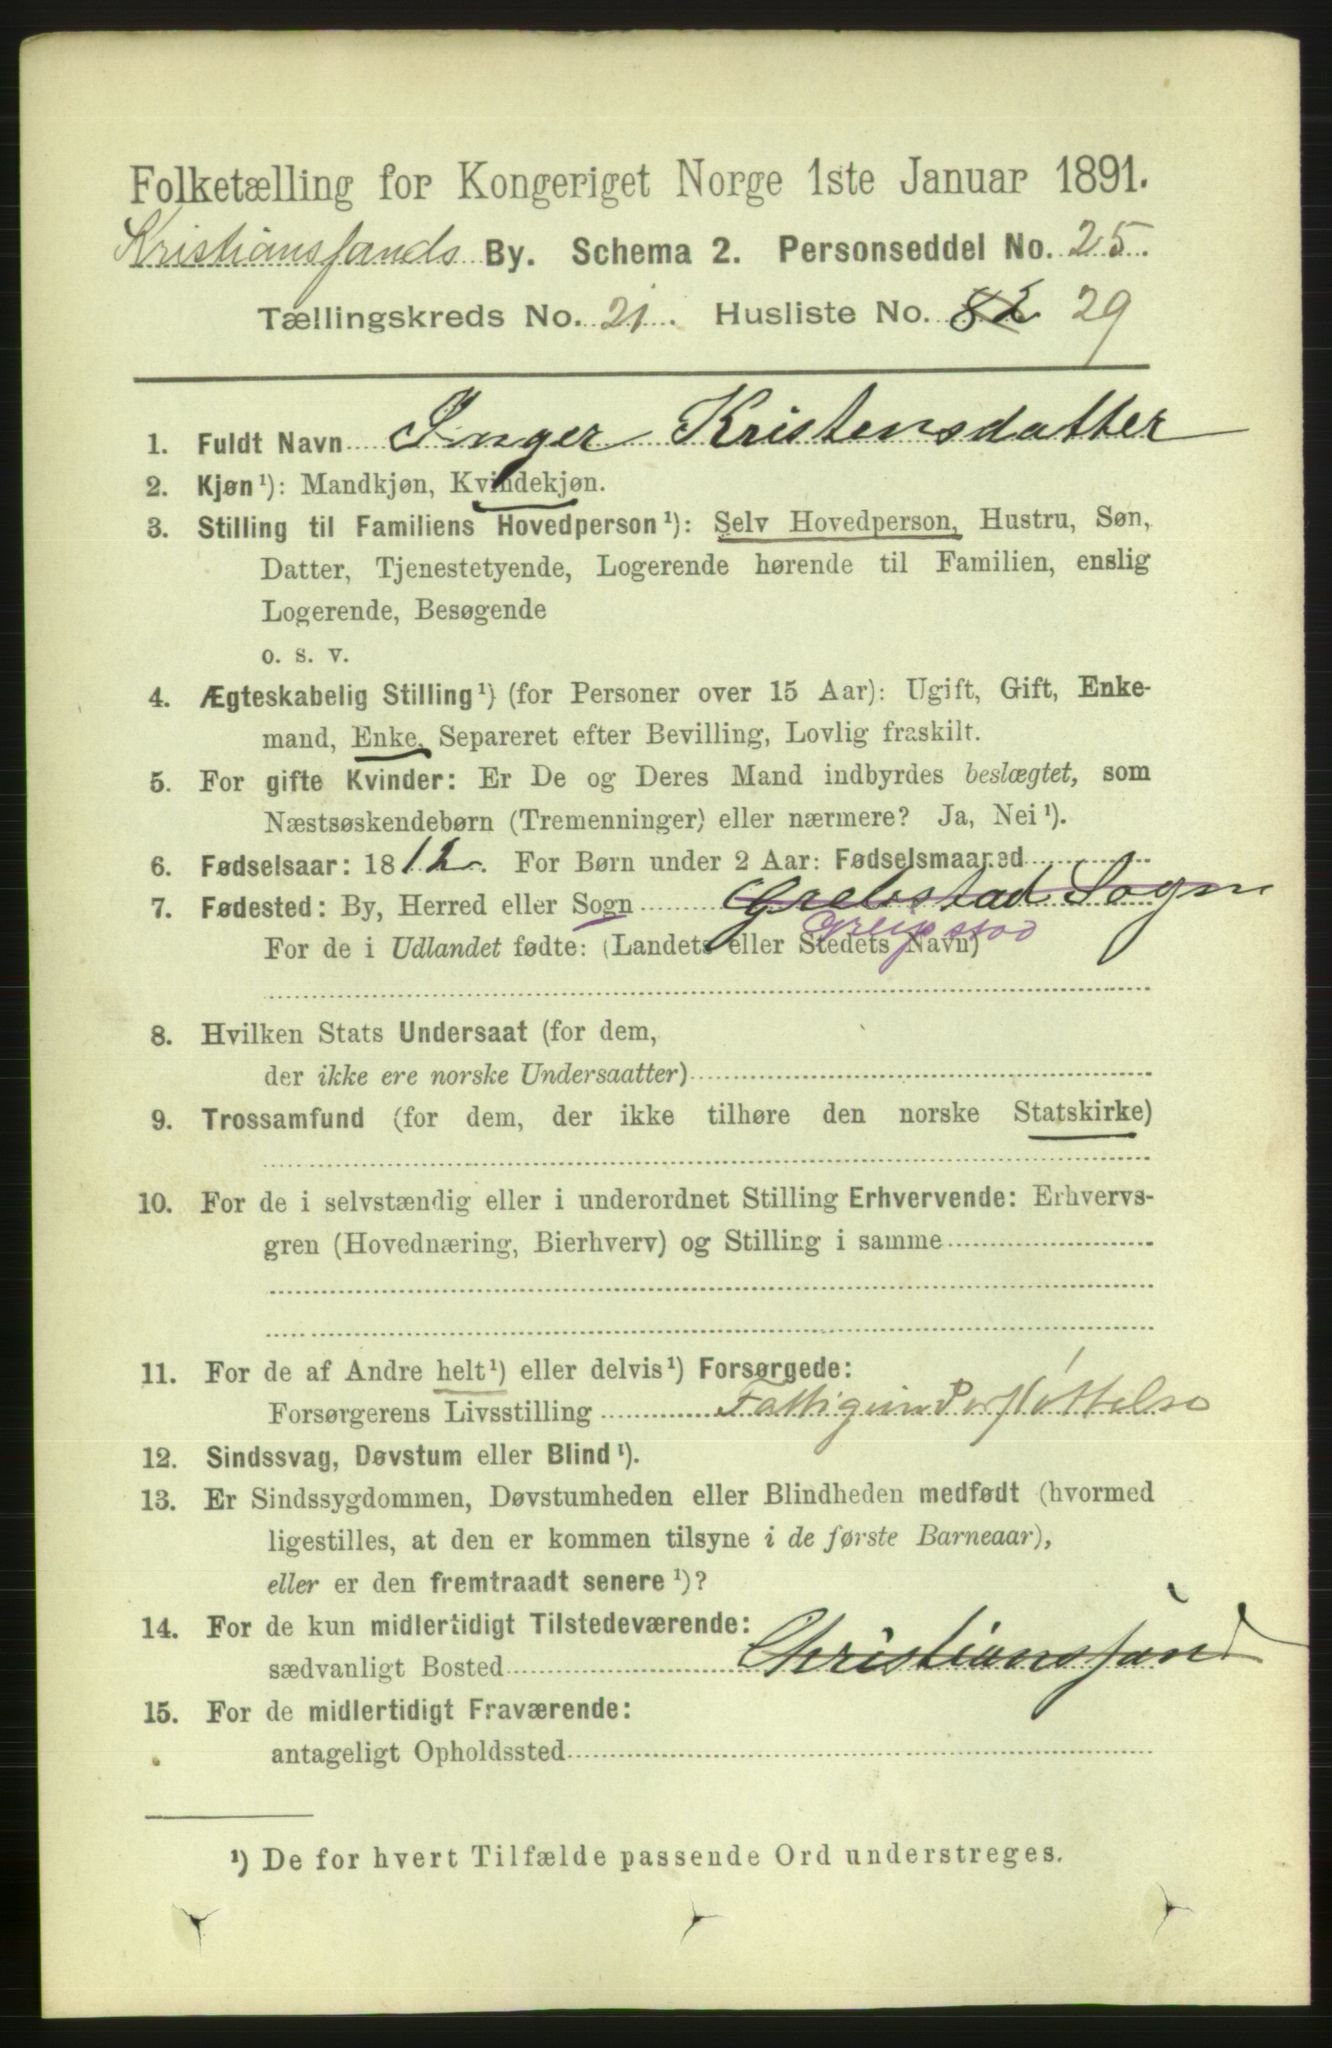 Folketælling for Kongeriget Norge 1ste Januar 1891.
Kristiansfands By. Schema 2. Personseddel No. 25.
Tællingskreds No. 21. Husliste No. 82 29
1. Fuldt Navn Inger Kristensdatter
2. Kjøn¹): Mandkjøn, Kvindekjøn.
3. Stilling til Familiens Hovedperson¹): Selv Hovedperson, Hustru, Søn,
Datter, Tjenestetyende, Logerende hørende til Familien, enslig
Logerende, Besøgende
o. s. v.
4. Ægteskabelig Stilling¹) (for Personer over 15 Aar): Ugift, Gift, Enke-
mand, Enke, Separeret efter Bevilling, Lovlig fraskilt.
5. For gifte Kvinder: Er De og Deres Mand indbyrdes beslægtet, som
Næstsøskendebørn (Tremenninger) eller nærmere? Ja, Nei¹).
6. Fødselsaar: 1812. For Børn under 2 Aar: Fødselsmaaned
7. Fødested: By, Herred eller Sogn Grebstad Sogn
Greipstad
For de i Udlandet fødte: (Landets eller Stedets Navn)
8. Hvilken Stats Undersaat (for dem,
der ikke ere norske Undersaatter)
9. Trossamfund (for dem, der ikke tilhøre den norske Statskirke)
10. For de i selvstændig eller i underordnet Stilling Erhvervende: Erhvervs-
gren (Hovednæring, Bierhverv) og Stilling i samme
11. For de af Andre helt¹) eller delvis¹) Forsørgede:
Forsørgerens Livsstilling
12. Sindssvag, Døvstum eller Blind¹).
13. Er Sindssygdommen, Døvstumheden eller Blindheden medfødt (hvormed
ligestilles, at den er kommen tilsyne i de første Barneaar),
eller er den fremtraadt senere¹)?
14. For de kun midlertidigt Tilstedeværende:
sædvanligt Bosted Christiansfand
15. For de midlertidigt Fraværende:
antageligt Opholdssted
¹) De for hvert Tilfælde passende Ord understreges.